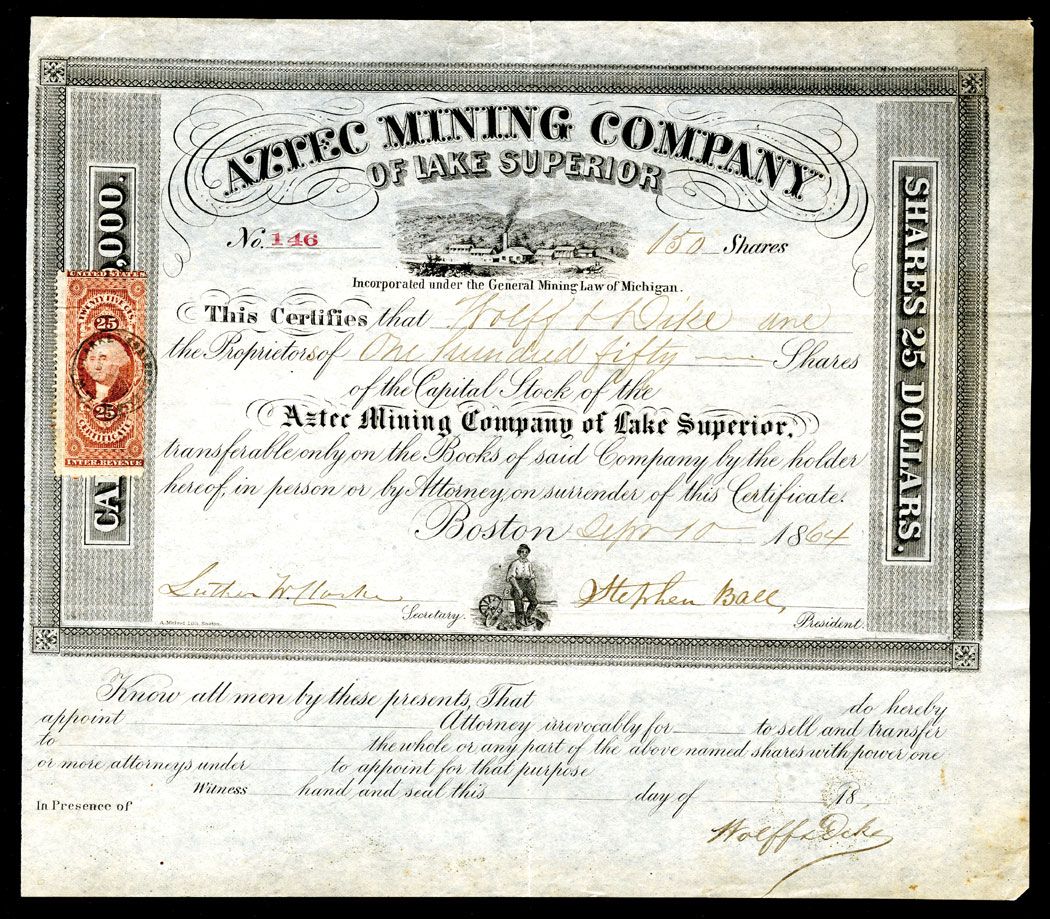 AZTEC MINING COMPANY
OF LAKE SUPERIOR
No. 146
150 Shares
Incorporated under the General Mining Law of Michigan.
This Certifies that Wolff & Dike are
the Proprietors of One hundred fifty Shares
of the Capital Stock of the
Aztec Mining Company of Lake Superior,
transferable only on the Books of said Company by the holder
hereof, in person or by Attorney, on surrender of this Certificate.
Boston Sept 10 1864
Luther W. Clarke
Secretary.
Stephen Ball,
President.
A. Meisel Lith. Boston.
CA
,000.
SHARES 25 DOLLARS.
UNITED STATES
TWENTY FIVE CTS.
25
25
CERTIFICATE
INTER. REVENUE
Know all men by these presents, That do hereby
appoint Attorney irrevocably for to sell and transfer
to the whole or any part of the above named shares with power one
or more attorneys under to appoint for that purpose
Witness hand and seal this day of 18
In Presence of
Wolff & Dike